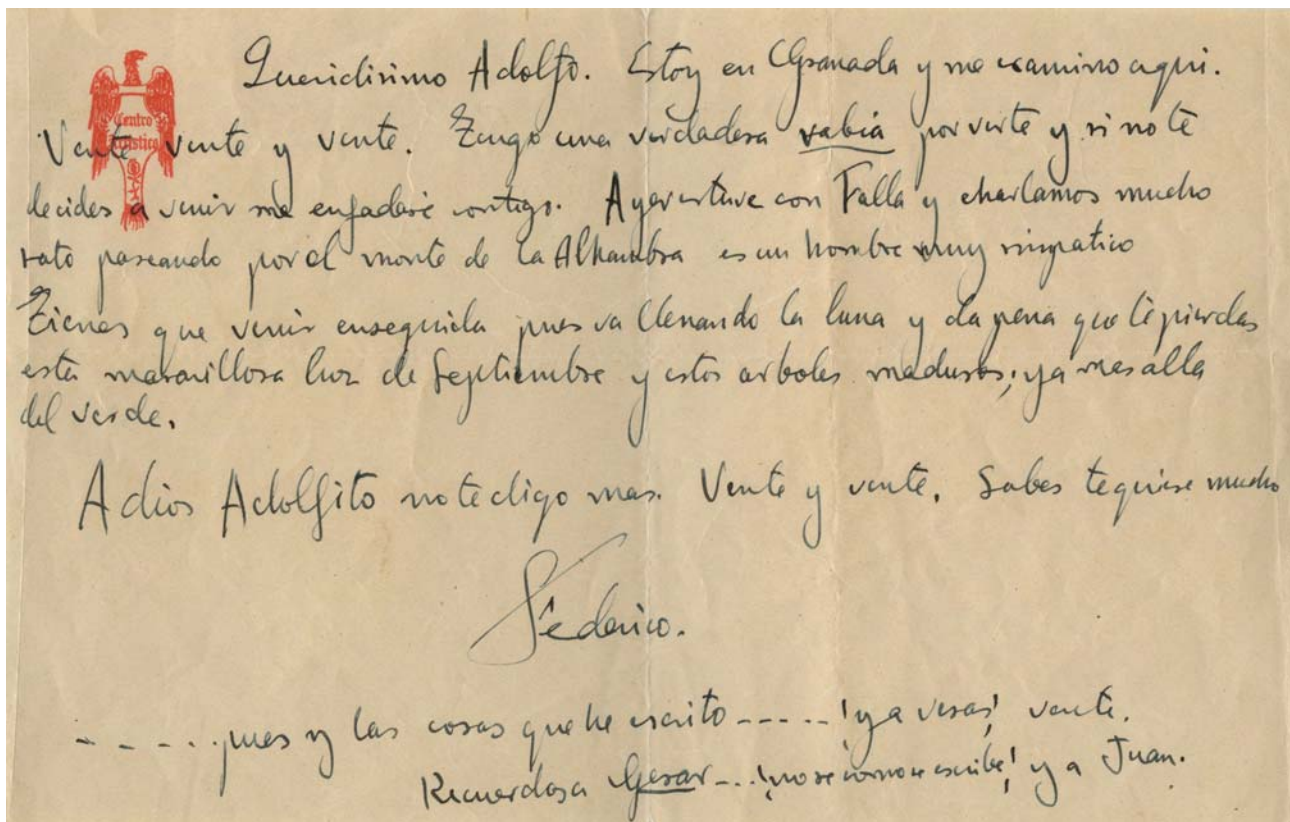 Centro
Artístico
Queridisimo Adolfo. Estoy en Granada y me examino aqui.
Vente vente y vente. Tengo una verdadera rabia por verte y si no te
decides a venir me enfadaré contigo. Ayer estuve con Falla y charlamos mucho
rato paseando por el monte de la Alhambra es un hombre muy simpatico
Tienes que venir enseguida pues va llenando la luna y da pena que te pierdas
esta maravillosa luz de Septiembre y estos arboles maduros; ya mas alla
del verde.
Adios Adolfito no te digo mas. Vente y vente. Sabes te quiere mucho
Federico.
- - - - . pues y las cosas que he escrito - - - - - ! ya veras! vente.
Recuerdos a Gesar - - . ! no se como se escribe! y a Juan.